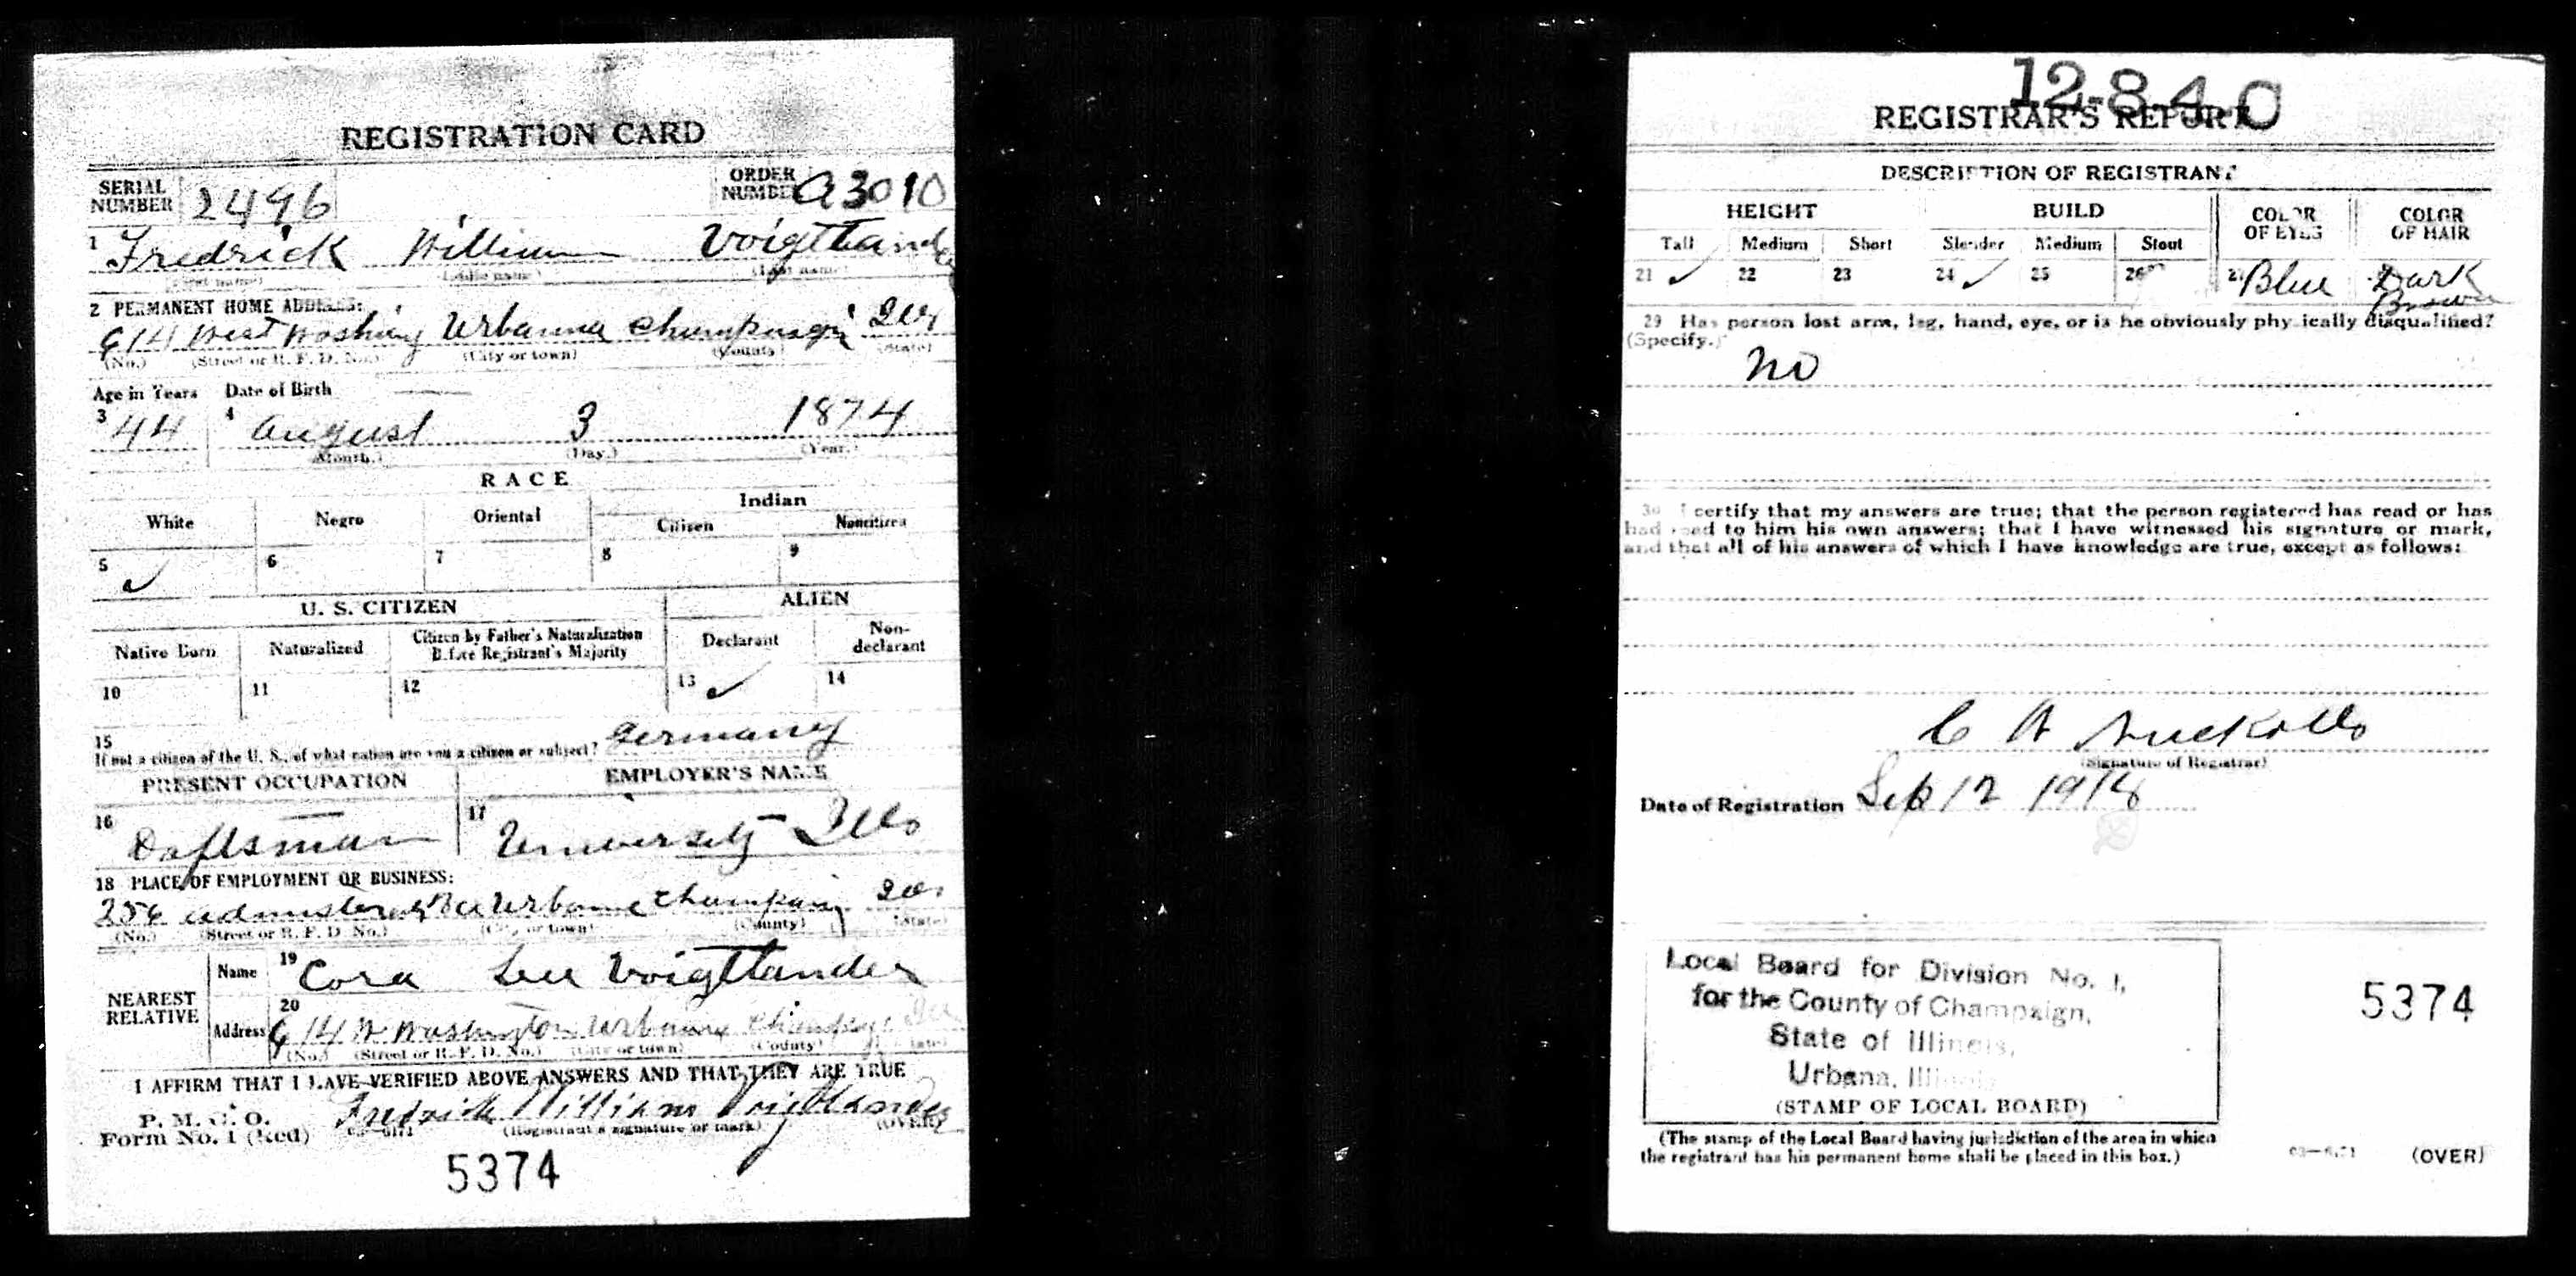 REGISTRATION CARD
SERIAL NUMBER 2496
ORDER NUMBER A3010
1 Fredrick William Voigtlander
(First name) (Middle name) (Last name)
2 PERMANENT HOME ADDRESS:
614 West Washing Urbanna Champaign Ills
(No.) (Street or R. F. D. No.) (City or town) (County) (State)
Age in Years Date of Birth
3 44 4 August 3 1874
(Month.) (Day.) (Year.)
RACE
White Negro Oriental Indian
Citizen Noncitizen
5 ✓ 6 7 8 9
U. S. CITIZEN ALIEN
Native Born Naturalized Citizen by Father's Naturalization Before Registrant's Majority Declarant Non-declarant
10 11 12 13 ✓ 14
15 Germany
If not a citizen of the U. S., of what nation are you a citizen or subject?
PRESENT OCCUPATION EMPLOYER'S NAME
16 Daftsman 17 University Ills
18 PLACE OF EMPLOYMENT OR BUSINESS:
256 Urbana Champaign Ills
(No.) (Street or R. F. D. No.) (City or town) (County) (State)
NEAREST RELATIVE
Name 19 Cora Lee Voigtlander
Address 20 614 W Washington Urbana Champaign Ills
(No.) (Street or R. F. D. No.) (City or town) (County) (State)
I AFFIRM THAT I HAVE VERIFIED ABOVE ANSWERS AND THAT THEY ARE TRUE
P. M. G. O.
Form No. 1 (Red) 03—6171 Fredrick William Voigtlander
(Registrant's signature or mark) (OVER)
5374
12-8-4-C
REGISTRAR'S REPORT
DESCRIPTION OF REGISTRANT
HEIGHT BUILD COLOR OF EYES COLOR OF HAIR
Tall Medium Short Slender Medium Stout
21 ✓ 22 23 24 ✓ 25 26 27 Blue 28 Dark Brown
29 Has person lost arm, leg, hand, eye, or is he obviously physically disqualified?
(Specify.)
no
30 I certify that my answers are true; that the person registered has read or has
had read to him his own answers; that I have witnessed his signature or mark,
and that all of his answers of which I have knowledge are true, except as follows:
C W Nuckolls
(Signature of Registrar)
Date of Registration Sep 12 1918
Local Board for Division No. 1,
for the County of Champaign,
State of Illinois,
Urbana, Illinois
(STAMP OF LOCAL BOARD)
5374
(The stamp of the Local Board having jurisdiction of the area in which
the registrant has his permanent home shall be placed in this box.)
03—6171 (OVER)